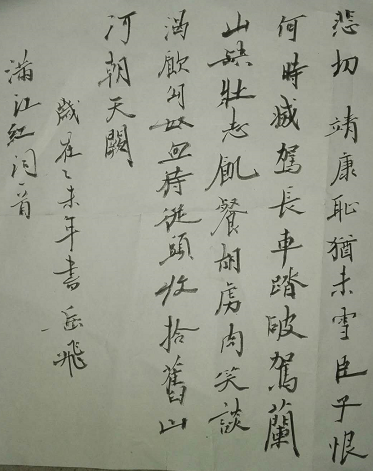 悲切 靖康恥猶未雪臣子恨
何時滅駕長車踏破駕蘭
山缺壯志飢餐胡虜肉笑談
渴飲匈奴血待從頭收拾舊山
河朝天闕
歲在乙未年書 岳飛
滿江红词一首